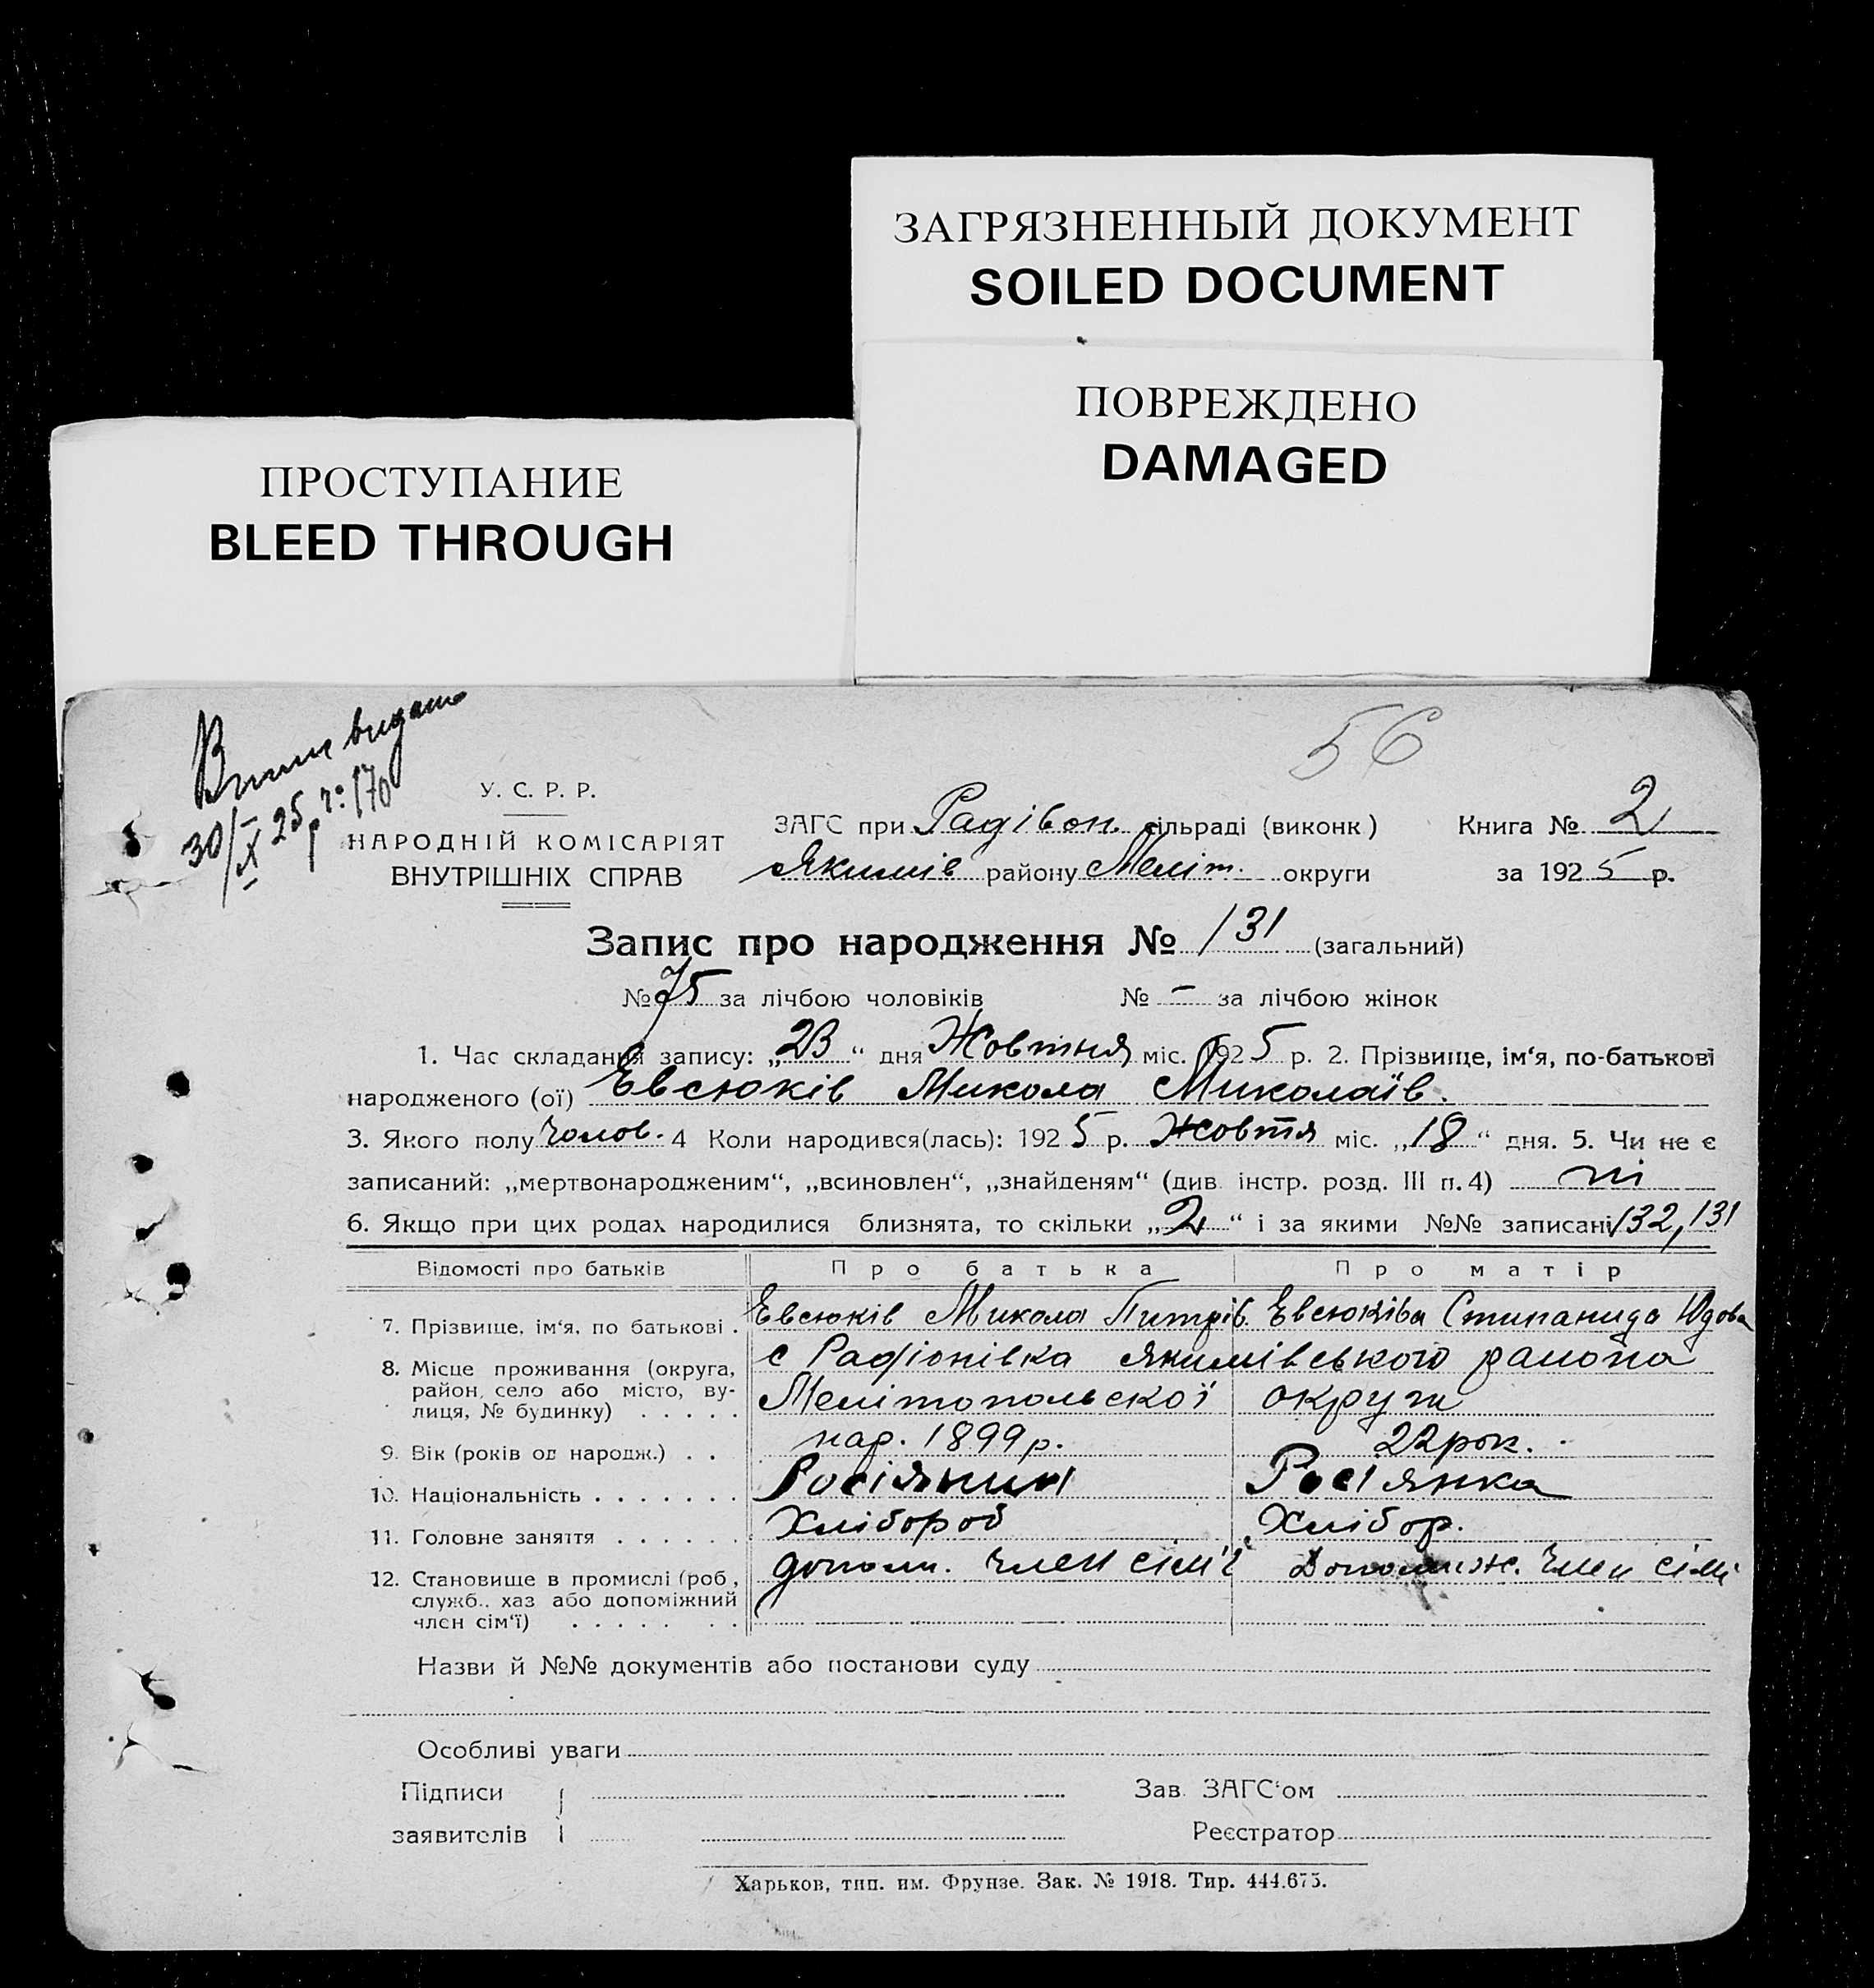 ЗАГРЯЗНЕННЫЙ ДОКУМЕНТ
SOILED DOCUMENT
ПОВРЕЖДЕНО
DAMAGED
ПРОСТУПАНИЕ
BLEED THROUGH
56
видано
30/IX 25р № 170
У. С. Р. Р.
НАРОДНІЙ КОМІСАРІЯТ
ВНУТРІШНІХ СПРАВ
ЗАГС при Радівон. сільраді (виконк)
Якимів району Меліт. округи
Книга № 2
за 1925 р.
Запис про народження № 131 (загальний)
№ 75 за лічбою чоловіків № – за лічбою жінок
1. Час складання запису: „23“ дня Жовтня міс. 1925 р. 2. Прізвище, ім‘я, по-батькові
народженого (ої) Евсюків Микола Миколаїв.
3. Якого полу чолов. 4 Коли народився(лась): 1925 р. Жовтя міс. „18“ дня. 5. Чи не є
записаний: „мертвонародженим“, „всиновлен“, „знайденям“ (див. інстр. розд. III п. 4) ні
6. Якщо при цих родах народилися близнята, то скільки „2“ і за якими №№ записані 132, 131
Відомості про батьків Про батька Про матір
7. Прізвище, ім‘я, по батькові . Евсюків Микола Питрів. Евсюківа Стипанида Юдова
8. Місце проживання (округа, с Радіонівка Якимівського района
район, село або місто, ву-
лиця, № будинку) . . . . . Мелітопольскої округи
9. Вік (років од народж.) . . нар. 1899 р. 22 рок.
10. Національність . . . . . . . Росіянин Росіянка
11. Головне заняття . . . . . . Хлібороб Хлібор.
12. Становище в промислі (роб., допом. член сім'ї Допоміж. член сімї
служб., хаз або допоміжний
член сім‘ї) . . . . . . .
Назви й №№ документів або постанови суду
Особливі уваги
Підписи
заявителів
Зав. ЗАГС‘ом
Реєстратор
Харьков, тип. им. Фрунзе. Зак. № 1918. Тир. 444.675.